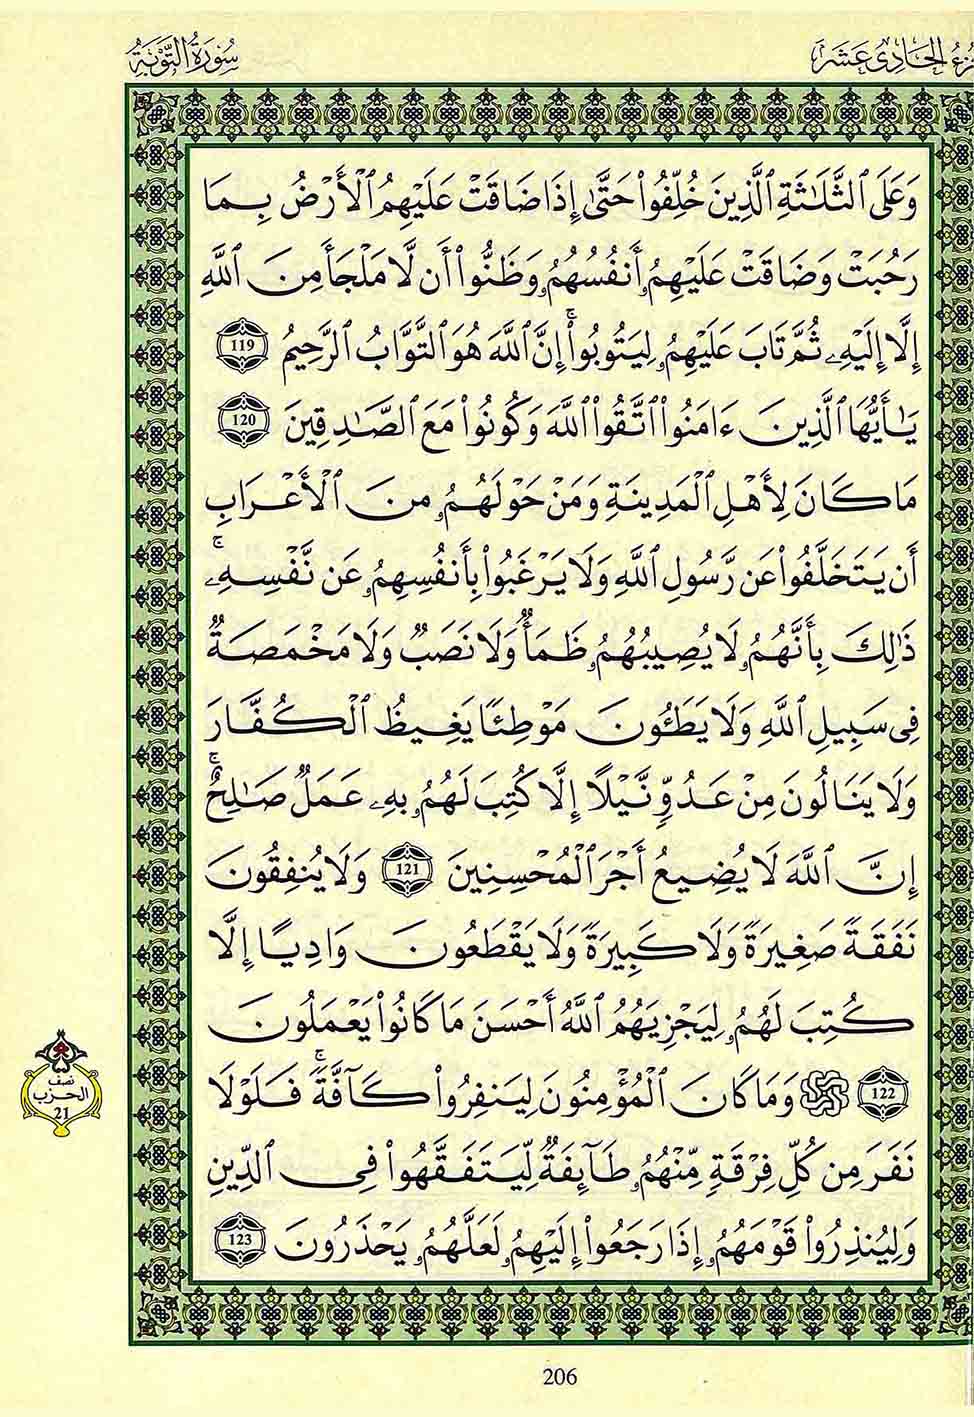 الجزء الحادي عشر
سورة التوبة
وَعَلَى ٱلثَّلَٰثَةِ ٱلَّذِينَ خُلِّفُواْ حَتَّىٰ إِذَا ضَاقَتْ عَلَيْهِمُ ٱلْأَرْضُ بِمَا
رَحُبَتْ وَضَاقَتْ عَلَيْهِمُۥ أَنفُسُهُمُۥ وَظَنُّواْ أَن لَّا مَلْجَأَ مِنَ ٱللَّهِ
إِلَّا إِلَيْهِۦ ثُمَّ تَابَ عَلَيْهِمُۥ لِيَتُوبُواْۚ إِنَّ ٱللَّهَ هُوَ ٱلتَّوَّابُ ٱلرَّحِيمُ 119
يَٰأَيُّهَا ٱلَّذِينَ ءَامَنُواْ ٱتَّقُواْ ٱللَّهَ وَكُونُواْ مَعَ ٱلصَّٰدِقِينَ 120
مَا كَانَ لِأَهْلِ ٱلْمَدِينَةِ وَمَنْ حَوْلَهُمُۥ مِنَ ٱلْأَعْرَابِ
أَن يَتَخَلَّفُواْ عَن رَّسُولِ ٱللَّهِ وَلَا يَرْغَبُواْ بِأَنفُسِهِمُۥ عَن نَّفْسِهِۦۚ
ذَٰلِكَ بِأَنَّهُمُۥ لَا يُصِيبُهُمُۥ ظَمَأٌ وَلَا نَصَبٌ وَلَا مَخْمَصَةٌ
فِي سَبِيلِ ٱللَّهِ وَلَا يَطَـُٔونَ مَوْطِئًا يَغِيظُ ٱلْكُفَّارَ
وَلَا يَنَالُونَ مِنْ عَدُوٍّ نَّيْلًا إِلَّا كُتِبَ لَهُمُۥ بِهِۦ عَمَلٌ صَٰلِحٌۚ
إِنَّ ٱللَّهَ لَا يُضِيعُ أَجْرَ ٱلْمُحْسِنِينَ 121 وَلَا يُنفِقُونَ
نَفَقَةً صَغِيرَةً وَلَا كَبِيرَةً وَلَا يَقْطَعُونَ وَادِيًا إِلَّا
كُتِبَ لَهُمُۥ لِيَجْزِيَهُمُ ٱللَّهُ أَحْسَنَ مَا كَانُواْ يَعْمَلُونَ
122 وَمَا كَانَ ٱلْمُؤْمِنُونَ لِيَنفِرُواْ كَآفَّةًۚ فَلَوْلَا
نَفَرَ مِن كُلِّ فِرْقَةٍ مِّنْهُمُۥ طَآئِفَةٌ لِّيَتَفَقَّهُواْ فِي ٱلدِّينِ
وَلِيُنذِرُواْ قَوْمَهُمُۥ إِذَا رَجَعُواْ إِلَيْهِمُۥ لَعَلَّهُمُۥ يَحْذَرُونَ 123
نصف
الحزب
21
206